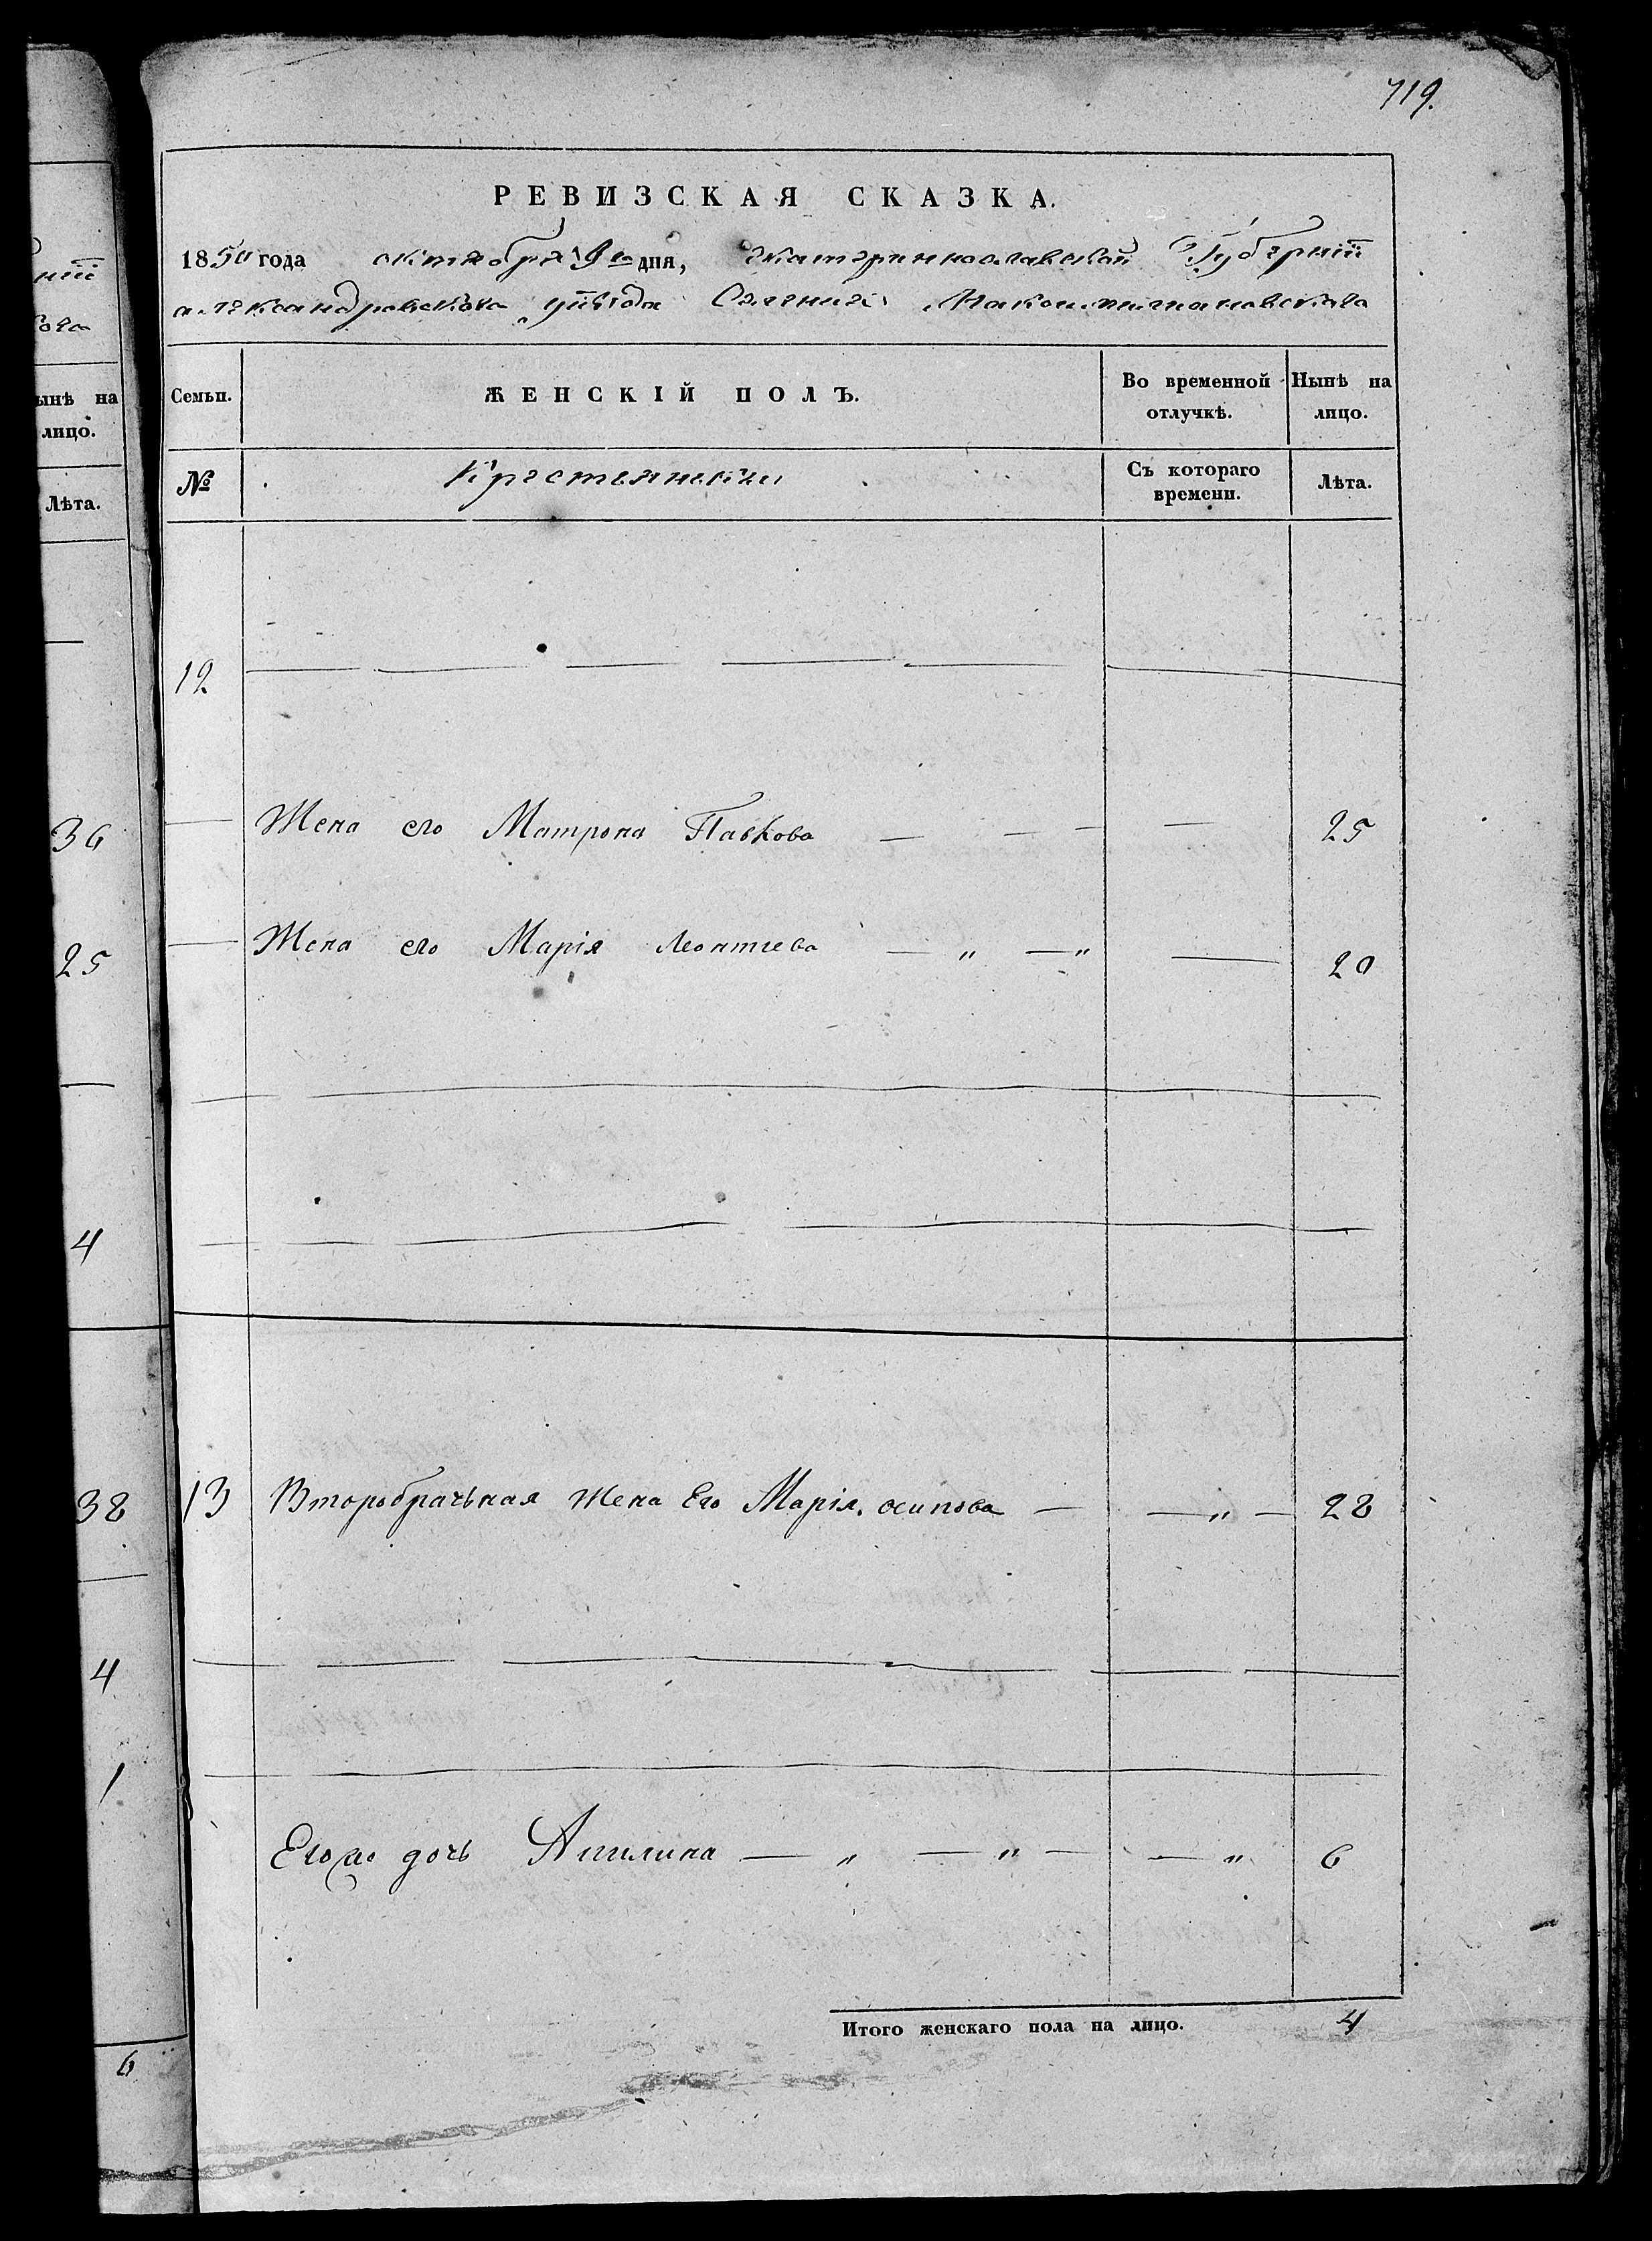 719.
РЕВИЗСКАЯ СКАЗКА.
1850 года октября 9го дня, Екатеринославской Губернии
Александровского уезда Селения
Семьи. ЖЕНСКІЙ ПОЛЪ. Во временной отлучкѣ. Нынѣ на лицо.
№ Крестьянки Съ котораго времени. Лѣта.
12
Жена его Матрона Павкова — — — — 25
Жена его Марія Леонтиева — „ — „ — 20
13 Второбрачьная жена Его Марія осипова — — „ — 28
дочь — „ — „ — — „ 6
Итого женскаго пола на лицо. 4
нiи
ынѣ на
лицо.
Лѣта.
36
25
4
38
4
1
6